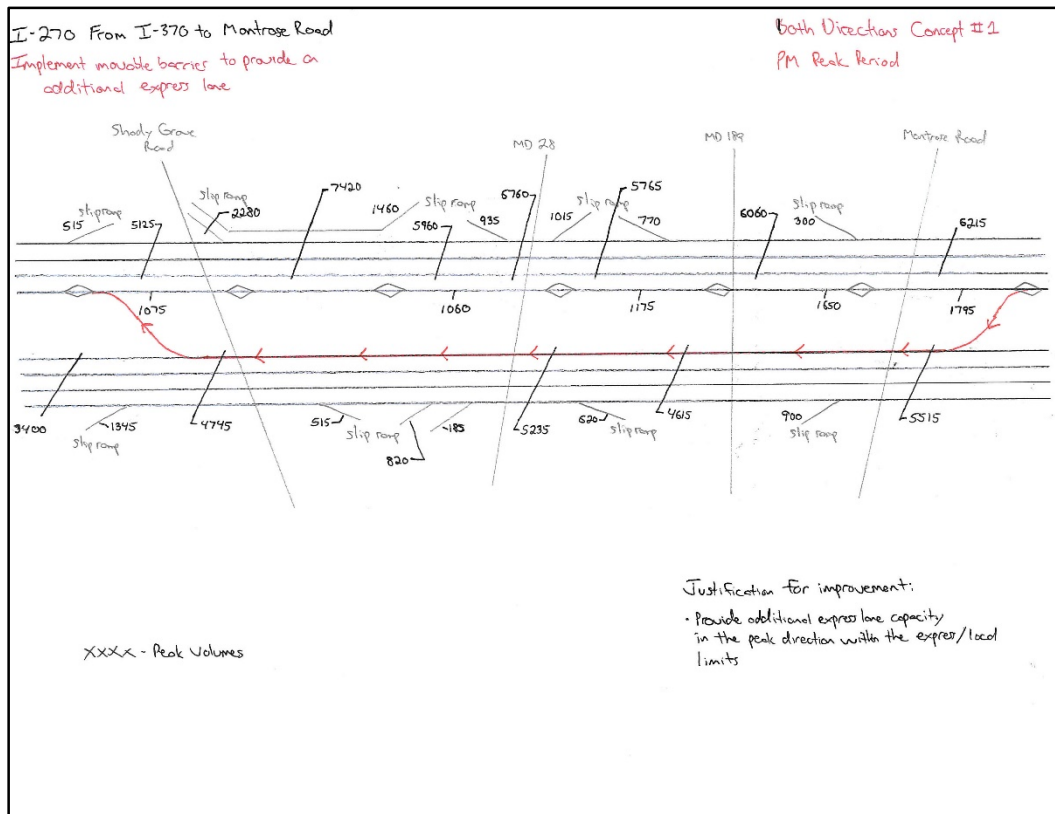 I-270 From I-370 to Montrose Road
Implement movable barrier to provide an
additional express lane
Both Directions Concept #1
PM Peak Period
Shady Grove
Road
MD 28
MD 189
Montrose Road
slip ramp
515
5125
slip ramp
2280
7420
1460
slip ramp
5960
935
6760
1015
slip ramp
5765
770
6060
slip ramp
300
6215
1075
1060
1175
1650
1795
3400
slip ramp
1345
4745
515
slip ramp
820
185
5235
620
slip ramp
4615
900
slip ramp
5515
XXXX - Peak Volumes
Justification for improvement:
· Provide additional express lane capacity
in the peak direction within the express/local
limits